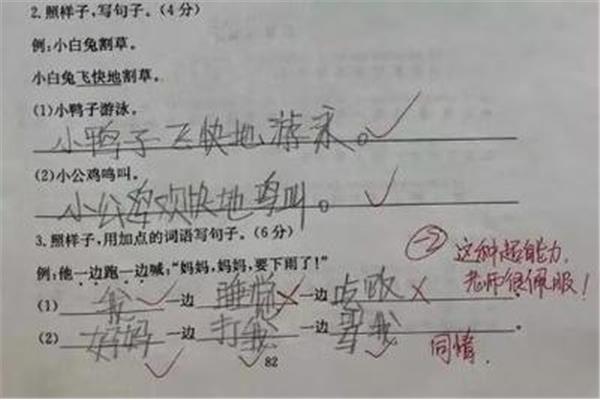 2.照样子,写句子。(4分)
例:小白兔割草。
小白兔飞快地割草。
(1)小鸭子游泳。
小鸭子飞快地游泳。
(2)小公鸡鸣叫。
小公鸡欢快地鸣叫。
3.照样子,用加点的词语写句子。(6分)
例:他一边跑一边喊:“妈妈,妈妈,要下雨了!”
(1)我一边睡觉一边
(2)妈妈一边打我一边骂我。
-2 这种超能力,
老师很佩服!
同情
82